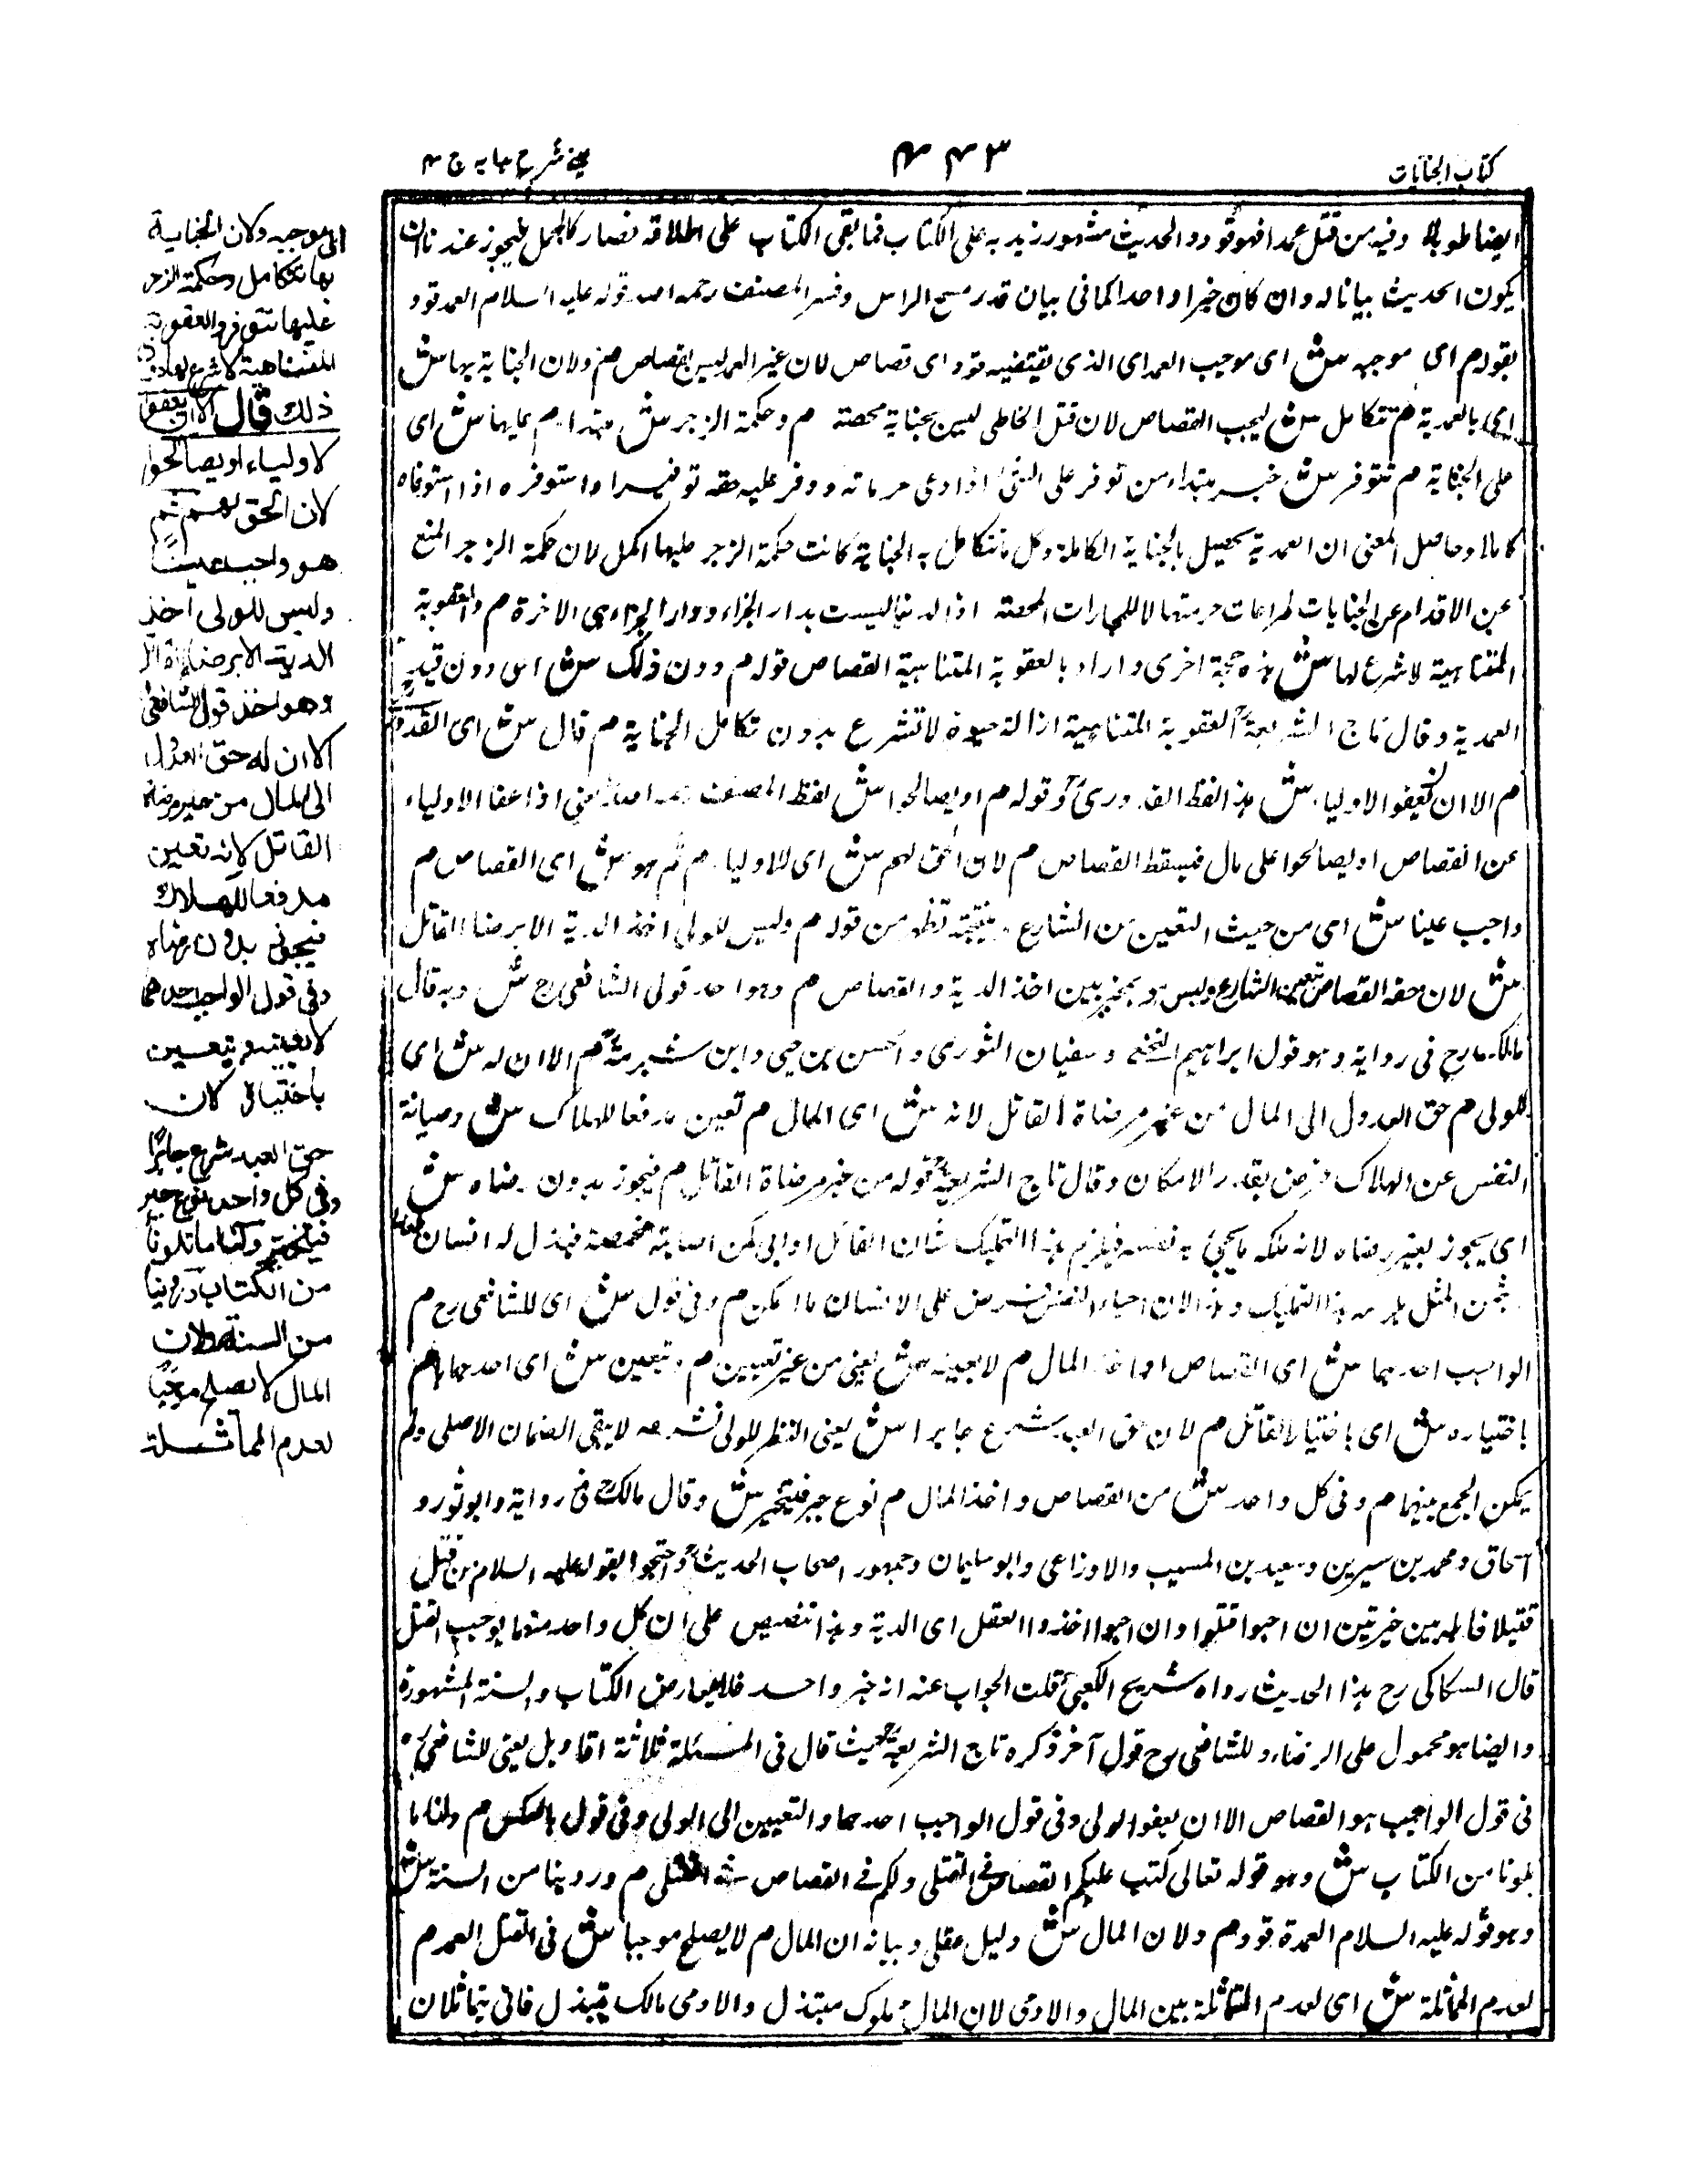 كتاب الجنايات
٤٤٣
عینی شرح ہدایہ ج ۴
ايضا طويلا وفيه من قتل عمدا فهو قود والحديث مشهور زيد به على الكتاب فما بقى الكتاب على اطلاقه فصار كالمجمل فيجوز عندنا ان
يكون الحديث بيانا له وان كان خبرا واحدا كما فى بيان قدر مسح الراس وفسر المصنف رحمه الله قوله عليه السلام العمد قود
بقوله م اى موجبه ش اى موجب العمد اى الذى يقتضيه قود اى قصاص لان غير العمد ليس بقصاص م ولان الجناية بها ش
اى بالعمدية م تتكامل ش ليجب القصاص لان قتل الخاطى ليس بجناية محضة م وحكمة الزجر ش مبتدا م عليها ش اى
على الجناية م تتوفر ش خبر مبتدا من توفر على الشئ اذا رعى حرماته ووفر عليه حقه توفيرا واستوفره اذا استوفاه
كاملا وحاصل المعنى ان العمدية تحصيل بالجناية الكاملة وكل ما تتكامل به الجناية كانت حكمة الزجر عليها اكمل لان حكمة الزجر المنع
عن الاقدام عن الجنايات لمراعات حرمتها لا للمجازات المحضة اذ الدنيا ليست بدار الجزاء ودار الجزاء هى الاخرة م والعقوبة
المتناهية لا شرع لها ش هذه حجة اخرى واراد بالعقوبة المتناهية القصاص قوله م دون ذلك ش اى دون قيد
العمدية وقال تاج الشريعة العقوبة المتناهية ازالة حيوة لا تشرع بدون تكامل الجناية م قال ش اى القدورى
م الا ان يعفو الاولياء ش هذا لفظ القدورى وقوله م او يصالحوا ش لفظ المصنف رحمه الله يعنى اذا عفا الاولياء
عن القصاص او يصالحوا على مال فيسقط القصاص م لان الحق لهم ش اى للاولياء م ثم هو ش اى القصاص م
واجب عينا ش اى من حيث التعين من الشارع ونتيجته تظهر من قوله م وليس للولى اخذ الدية الا برضا القاتل
ش لان حقه القصاص بتعيين الشارع وليس هو بمخير بين اخذ الدية والقصاص م وهو احد قولى الشافعى رح ش وبه قال
مالك رح فى رواية وهو قول ابراهيم النخعى وسفيان الثورى والحسن بن حيى وابن شبرمة م الا ان له ش اى
للولى م حق العدول الى المال من غير مرضاة القاتل لانه ش اى المال م تعين مدفعا للهلاك ش وصيانة
النفس عن الهلاك فرض بقدر الامكان وقال تاج الشريعة قوله من غير مرضاة القاتل م فيجوز بدون رضاه ش
اى يجوز بغير رضاه لانه ملكه ما يحيى به نفسه فيلزم هذا التمليك شاان القاتل او ابى كمن اصابته مخمصة فبذل له انسان طعاما
بثمن المثل يلزمه هذا التمليك وهذا لان احياء النفس فرض على الانسان ما امكن م وفى قول ش اى للشافعى رح م
الواجب احدهما ش اى القصاص او اخذ المال م لا بعينه ش يعنى من غير تعيين م ويتعين ش اى احدهما م
باختياره ش اى باختيار القاتل م لان حق العبد شرع جابرا ش يعنى النظر للولى فشرعه لا يقى الضمان الاصلى ولم
يكن الجمع بينهما م وفى كل واحد ش من القصاص واخذ المال م نوع جبر فيتخير ش وقال مالك رح فى رواية وابو ثور و
اسحاق ومحمد بن سيرين وسعيد بن المسيب والاوزاعى وابو سليمان وجمهور اصحاب الحديث واحتجوا بقوله عليه السلام من قتل
قتيلا فاهله بين خيرتين ان احبوا قتلوا وان احبوا اخذوا العقل اى الدية وهذا تنصيص على ان كل واحد منهما يوجب القتل
قال السكاكى رح هذا الحديث رواه شريح الكعبى قلت الجواب عنه انه خبر واحد فلا يعارض الكتاب والسنة المشهورة
وايضا هو محمول على الرضاء وللشافعى رح قول آخر ذكره تاج الشريعة حيث قال فى المسئلة ثلاثة اقاويل يعنى للشافعى
فى قول الواجب هو القصاص الا ان يعفو الولى وفى قول الواجب احدهما والتعيين الى الولى وفى قول بالعكس م ولنا ما
تلونا من الكتاب ش وهو قوله تعالى كتب عليكم القصاص فى القتلى ولكم فى القصاص م وروينا من السنة ش
وهو قوله عليه السلام العمد قود م ولان المال ش دليل عقلى وبيانه ان المال م لا يصلح موجبا ش فى القتل العمد م
لعدم المماثلة ش اى لعدم المماثلة بين المال والادمى لان المال مملوك مبتذل والادمى مالك يتبذل فانى يتماثلان
اى موجبه ولان الجناية
بها تتكامل وحكمة الزجر
عليها تتوفر والعقوبة
المتناهية لا شرع لها دون
ذلك قال الا ان يعفو
الاولياء او يصالحوا
لان الحق لهم ثم
هو واجب عينا
وليس للولى اخذ
الدية الا برضاء القاتل
وهو احد قولى الشافعى
الا ان له حق العدول
الى المال من غير مرضاة
القاتل لانه تعين
مدفعا للهلاك
فيجوز بدون رضاه
وفى قول الواجب احدهما
لا بعينه ويتعين
باختياره لان
حق العبد شرع جابرا
وفى كل واحد نوع جبر
فيتخير ولنا ما تلونا
من الكتاب وروينا
من السنة ولان
المال لا يصلح موجبا
لعدم المماثلة